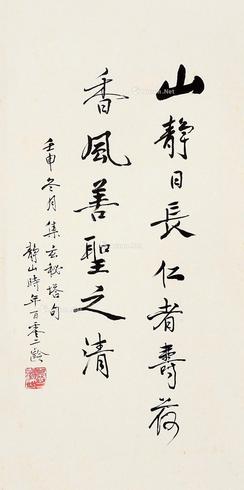 山靜日長仁者壽荷
香風善聖之清
壬申冬月集玄秘塔句
靜山時年百零二齡